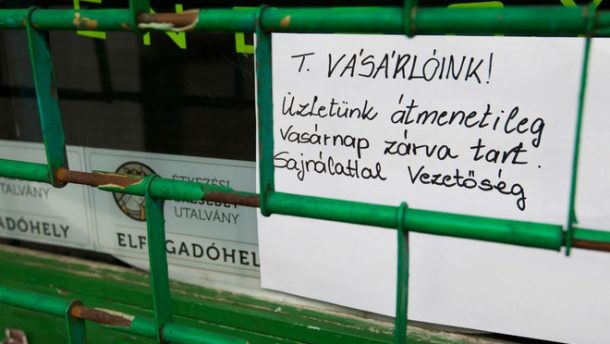 T. VÁSÁRLÓINK!
Üzletünk átmenetileg
vasárnap zárva tart.
Sajnálattal Vezetőség
ÉTKEZÉSI
UTALVÁNY
ELFOGADÓHELY
UTALVÁNY